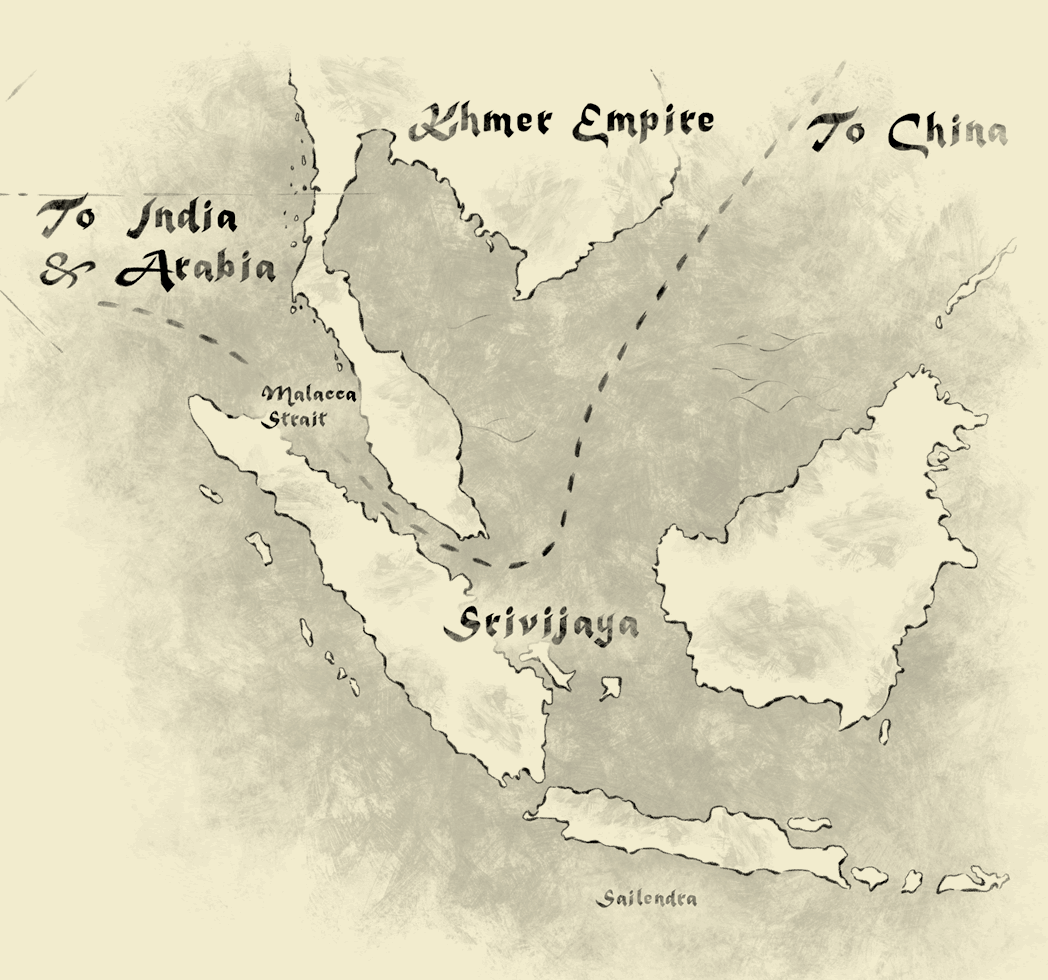 Khmer Empire
To China
To India
& Arabia
Malacca
Strait
Srivijaya
Sailendra